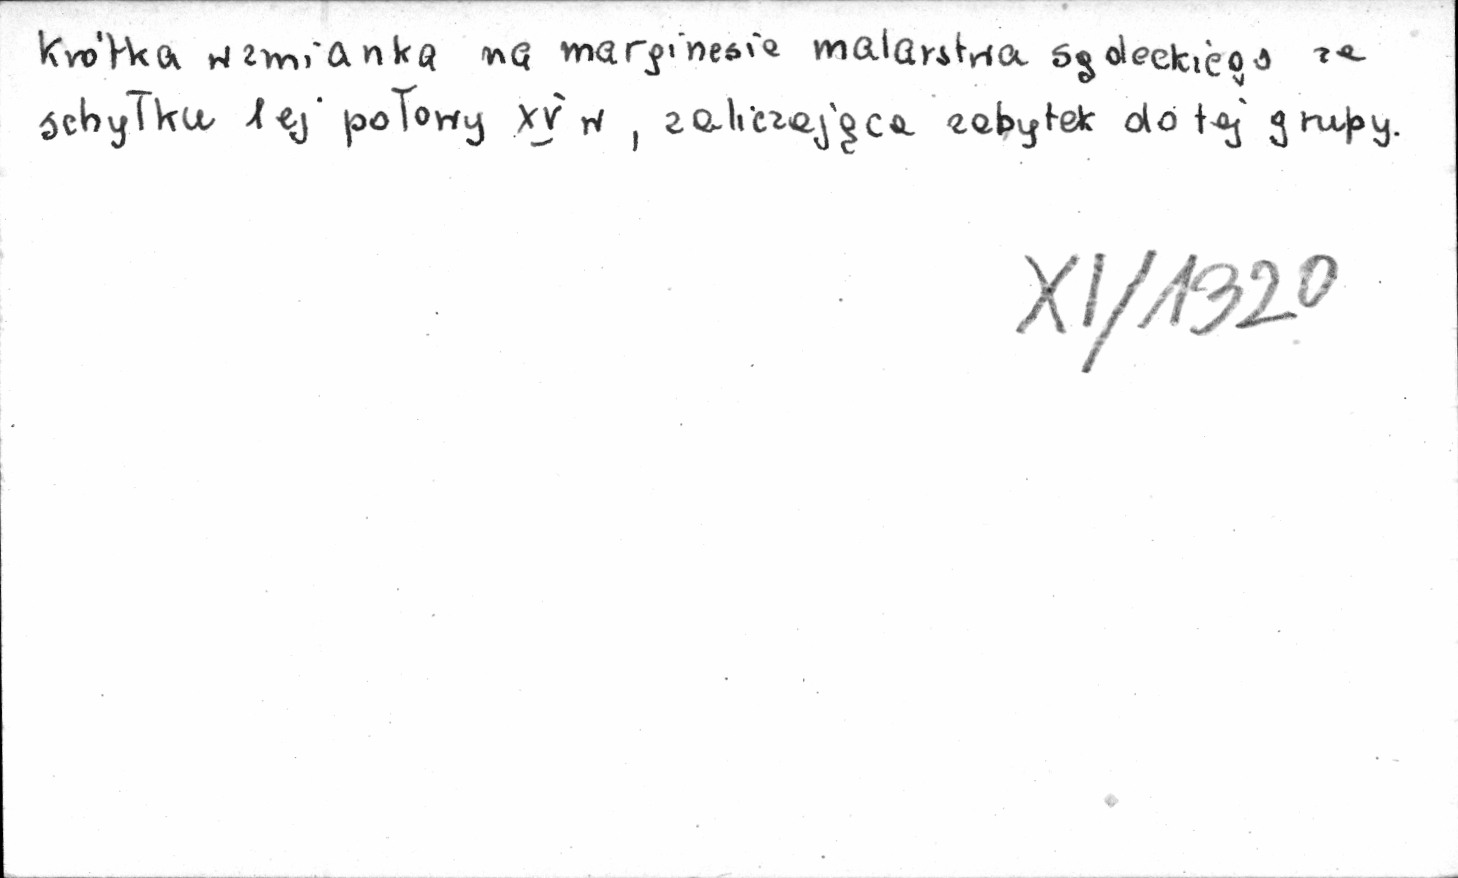 Krótka wzmianka na marginesie malarstwa sądeckiego ze
schyłku 1ej połowy XV w, zaliczająca zabytek do tej grupy.
XI/1320